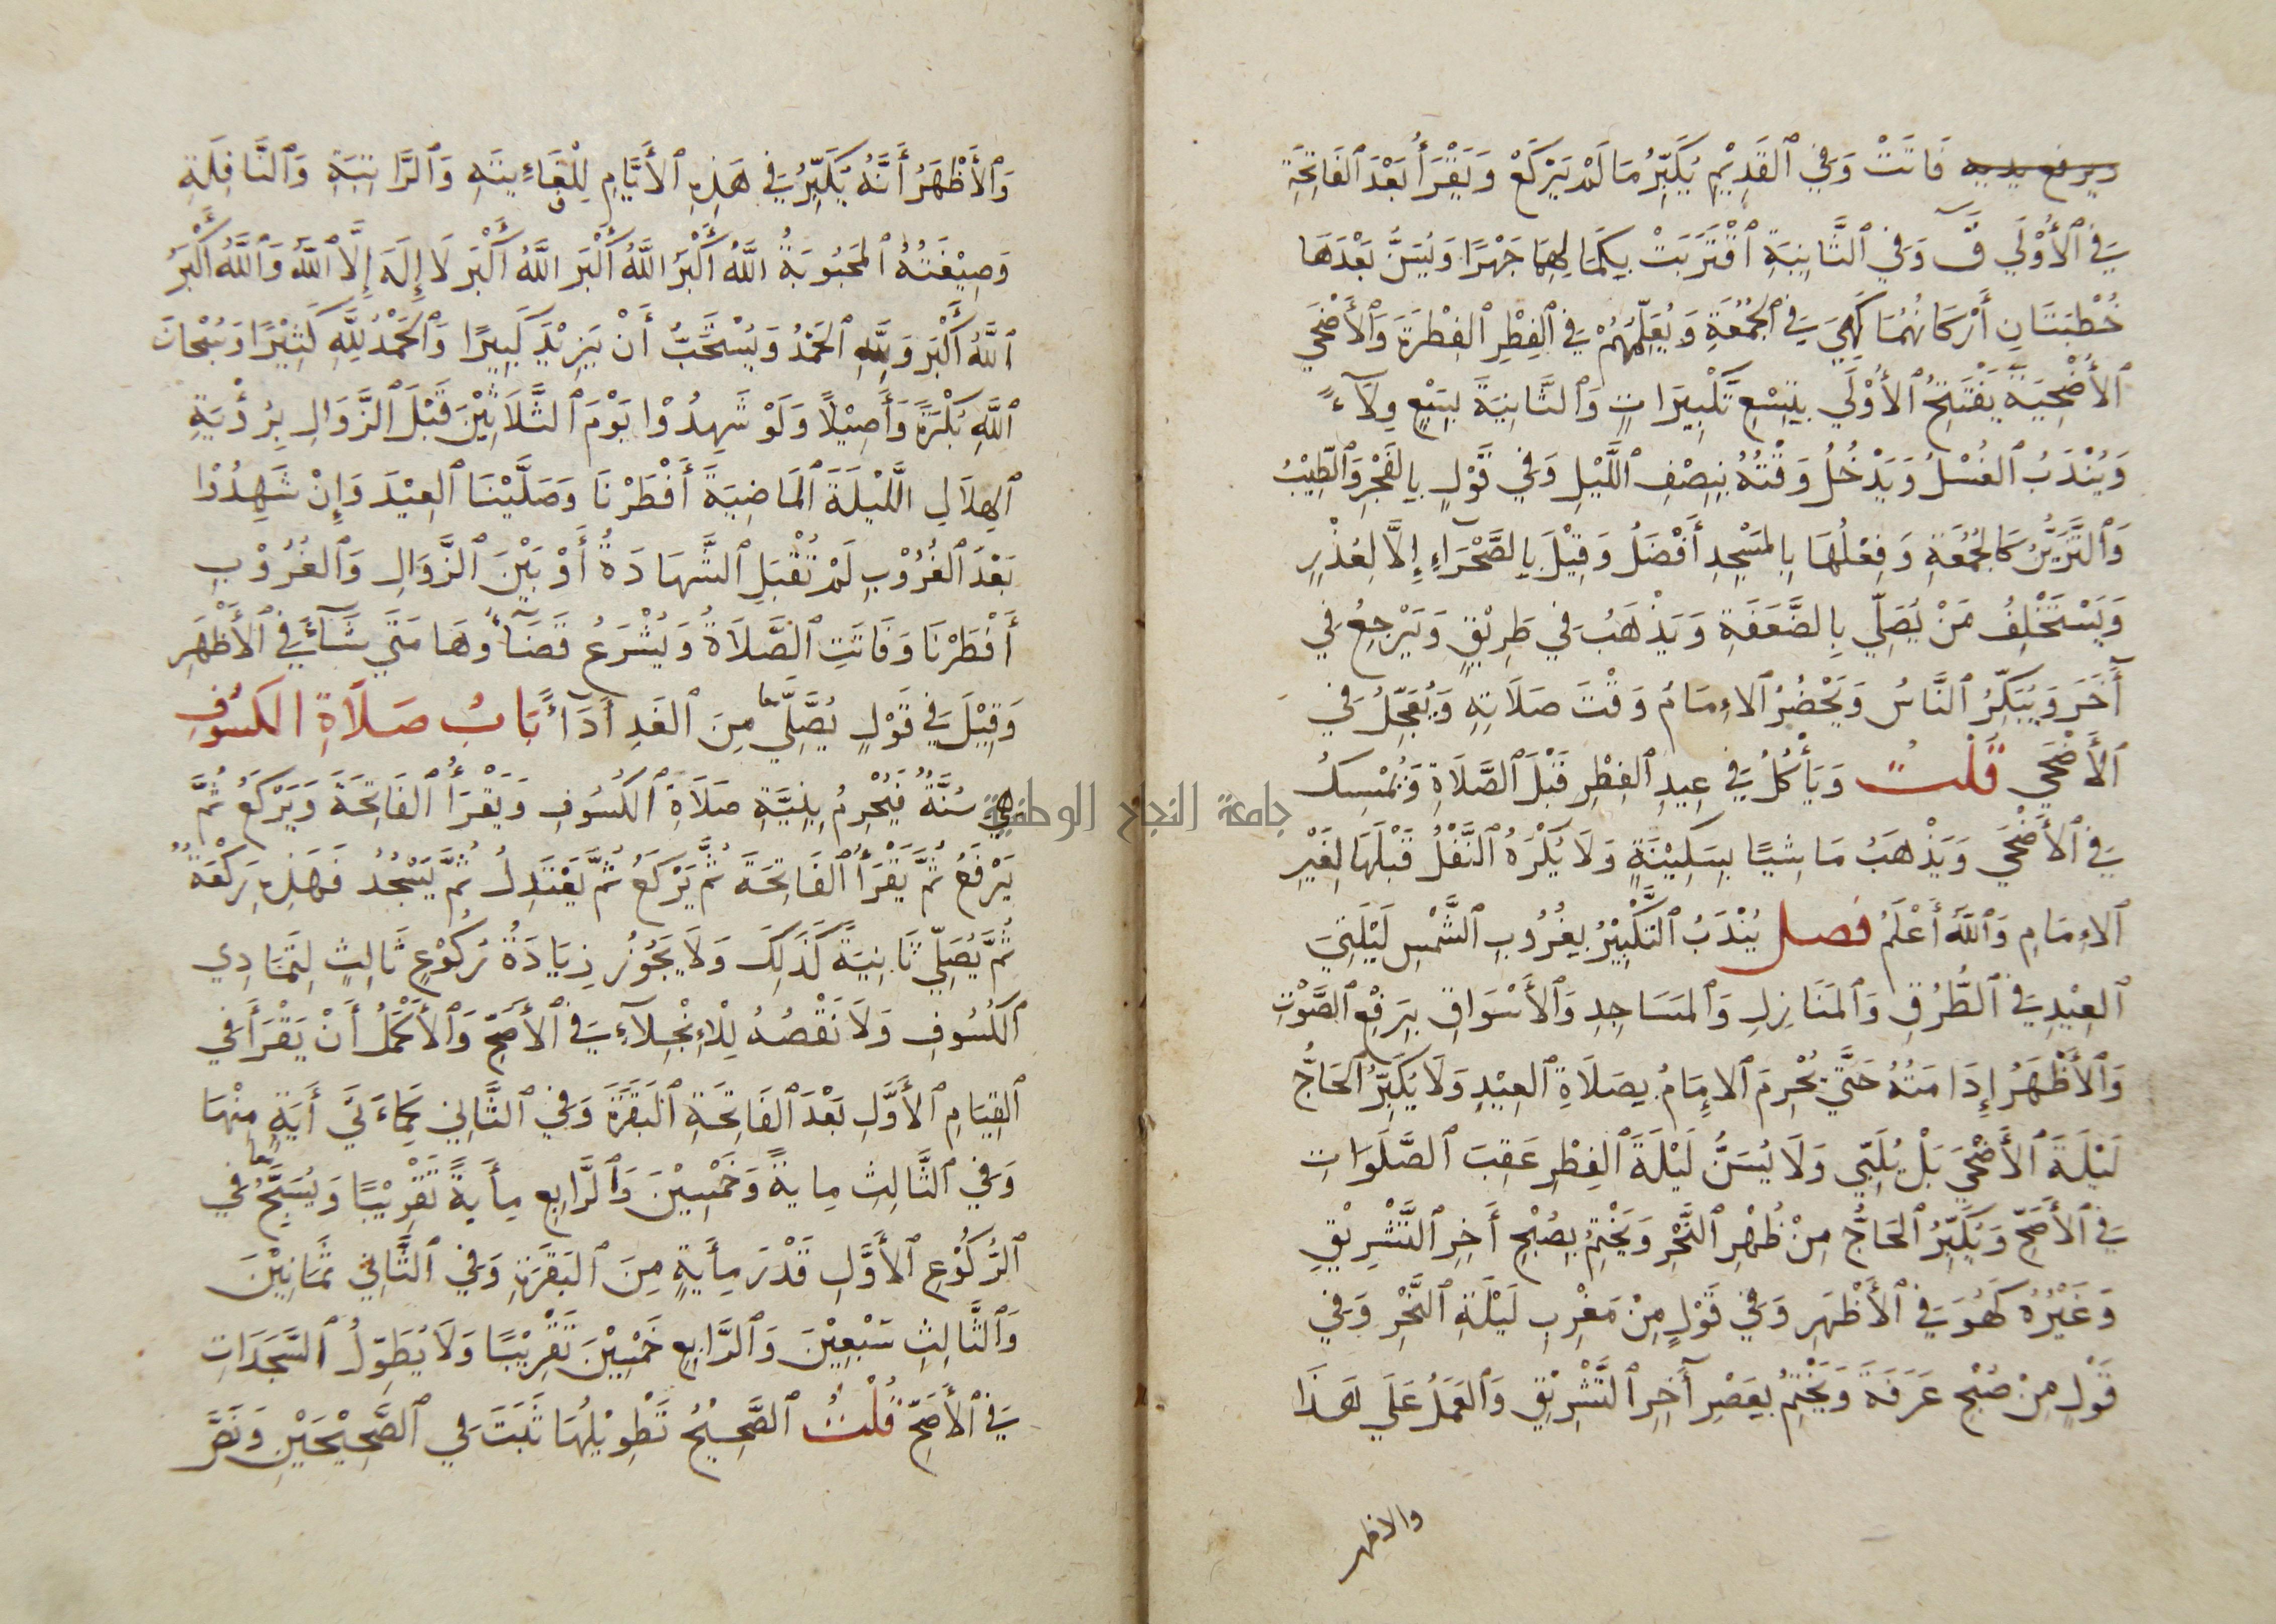 ويرفع يديه فَاتَتْ وَفِي ٱلقَدِيْمِ يُكَبِّرُ مَا لَمْ يَرْكَعْ وَيَقْرَأُ بَعْدَ ٱلفَاتِحَةِ
فِي ٱلأُوْلَي قٓ وَفِي ٱلثَّانِيَةِ ٱقْتَرَبَتْ بِكَمَالِهِمَا جَهْرًا وَيُسَنُّ بَعْدَهَا
خُطْبَتَانِ أَرْكَانُهُمَا كَهِيَ فِي ٱلجُمُعَةِ وَيُعَلِّمُهُمْ فِي ٱلفِطْرِ ٱلفِطْرَةَ وَٱلأَضْحَي
ٱلأُضْحِيَةَ يَفْتَتِحُ ٱلأُوْلَي بِتِسْعِ تَكْبِيْرَاتٍ وَٱلثَّانِيَةَ بِسَبْعٍ وِلَآءً
وَيُنْدَبُ ٱلغُسْلُ وَيَدْخُلُ وَقْتُهُ بِنِصْفِ ٱللَّيْلِ وَفِي قَوْلٍ بِالفَجْرِ وَٱلطِّيْبُ
وَٱلتَّزَيُّنُ كَالجُمُعَةِ وَفِعْلُهَا بِالمَسْجِدِ أَفْضَلُ وَقِيْلَ بِالصَّحْرَآءِ إِلَّا لِعُذْرٍ
وَيَسْتَخْلِفُ مَنْ يُصَلِّي بِالضَّعَفَةِ وَيَذْهَبُ فِي طَرِيْقٍ وَيَرْجِعُ فِي
أٓخَرَ وَيُبَكِّرُ ٱلنَّاسُ وَيَحْضُرُ ٱلاِمَامُ وَقْتَ صَلَاتِهِ وَيُعَجِّلُ فِي
ٱلأَضْحَي قُلْتُ وَيَأْكُلُ فِي عِيدِ ٱلفِطْرِ قَبْلَ ٱلصَّلَاةِ وَيُمْسِكُ
فِي ٱلأَضْحَي وَيَذْهَبُ مَاشِيًا بِسَكِيْنَةٍ وَلَا يُكْرَهُ ٱلنَّفْلُ قَبْلَهَا لِغَيْرِ
ٱلاِمَامِ وَٱللّٰهُ أَعْلَمُ فصل يُنْدَبُ ٱلتَّكْبِيْرُ بِغُرُوبِ ٱلشَّمْسِ لَيْلَتَيِ
ٱلعِيْدِ فِي ٱلطُّرُقِ وَٱلمَنَازِلِ وَٱلمَسَاجِدِ وَٱلأَسْوَاقِ بِرَفْعِ ٱلصَّوْتِ
وَٱلأَظْهَرُ إِدَامَتُهُ حَتَّي يُحْرِمَ ٱلاِمَامُ بِصَلَاةِ ٱلعِيْدِ وَلَا يُكَبِّرُ ٱلحَاجُّ
لَيْلَةَ ٱلأَضْحَي بَلْ يُلَبِّي وَلَا يُسَنُّ لَيْلَةَ ٱلفِطْرِ عَقِبَ ٱلصَّلَوَاتِ
فِي ٱلأَصَحِّ وَيُكَبِّرُ ٱلحَاجُّ مِنْ ظُهْرِ ٱلنَّحْرِ وَيَخْتِمُ بِصُبْحِ أَخِرِ ٱلتَّشْرِيْقِ
وَغَيْرُهُ كَهُوَ فِي ٱلأَظْهَرِ وَفِي قَوْلٍ مِنْ مَغْرِبِ لَيْلَةِ ٱلنَّحْرِ وَفِي
قَوْلٍ مِنْ صُبْحِ عَرَفَةَ وَيَخْتِمُ بِعَصْرِ أٓخِرِ ٱلتَّشْرِيْقِ وَٱلعَمَلُ عَلَي هَذَا
والاظهر
وَٱلأَظْهَرُ أَنَّهُ يُكَبِّرُ فِي هَذِهِ ٱلأَيَّامِ لِلْفَاءِيتَهِ وَٱلرَّاتِبَةِ وَٱلنَّافِلَةِ
وَصِيْغَتُهُ ٱلمَحْبُوبَةُ ٱللَّهُ أَكْبَرُ ٱللَّهُ أَكْبَر ٱللَّهُ أَكْبَر لَا إِلَهَ إِلَّا ٱللَّهُ وَٱللَّهُ أَكْبَرُ
ٱللَّهُ أَكْبَر وَلِلَّهِ ٱلحَمْدُ وَيُسْتَحَبُّ أَنْ يَزِيْدَ كَبِيرًا وَٱلحَمْدُ لِلَّهِ كَثِيْرًا وَسُبْحَانَ
ٱللَّهِ بُكْرَةً وَأَصِيْلًا وَلَوْ شَهِدُوْا يَوْمَ ٱلثَّلَاثِيْنَ قَبْلَ ٱلزَّوَالِ بِرُؤْيَةِ
ٱلهِلَالِ ٱللَّيْلَةَ ٱلمَاضِيَةَ أَفْطَرْنَا وَصَلَّيْنَا ٱلعِيْدَ وَإِنْ شَهِدُوْا
بَعْدَ ٱلغُرُوْبِ لَمْ تُقْبَلِ ٱلشَّهَادَةُ أَوْ بَيْنَ ٱلزَّوَالِ وَٱلغُرُوْبِ
أَفْطَرْنَا وَفَاتَتِ ٱلصَّلَاةُ وَيُشْرَعُ قَضَآؤُهَا مَتَي شَآءَ فِي ٱلأَظْهَرِ
وَقِيْلَ فِي قَوْلٍ يُصَلِّي مِنَ ٱلغَدِ أَدَآءً بَابُ صَلَاةِ الكُسُوْفِ
هِيَ سُنَّةٌ فَيُحْرِمُ بِنِيَّةِ صَلَاةِ ٱلكُسُوفِ وَيَقْرَأُ ٱلفَاتِحَةَ وَيَرْكَعُ ثُمَّ
يَرْفَعُ ثُمَّ يَقْرَأُ ٱلفَاتِحَةَ ثُمَّ يَرْكَعُ ثُمَّ يَعْتَدِلُ ثُمَّ يَسْجُدُ فَهَذِهِ رَكْعَةٌ
ثُمَّ يُصَلِّي ثَانِيَةً كَذَلِكَ وَلَا يَجُوْزُ زِيَادَةُ رُكُوْعٍ ثَالِثٍ لِتَمَادِي
ٱلكُسُوفِ وَلَا نَقْصُهُ لِلْاِنْجِلَآءِ فِي ٱلأَصَحِّ وَٱلأَكْمَلُ أَنْ يَقْرَأَ فِي
ٱلقِيَامِ ٱلأَوَّلِ بَعْدَ ٱلفَاتِحَةِ ٱلبَقَرَةَ وَفِي ٱلثَّانِي كَمَاءَتَي أَيَةٍ مِنْهَا
وَفِي ٱلثَّالِثِ مِايةً وَخَمْسِيْنَ وَٱلرَّابِعِ مِأيةً تَقْرِيْبًا وَيُسَبِّحُ فِي
ٱلرُّكُوْعِ ٱلأَوَّلِ قَدْرَ مِأَيةٍ مِنَ ٱلبَقَرَةِ وَفِي ٱلثَّانِي ثَمَانِيْنَ
وَٱلثَّالِثِ سَبْعِيْنَ وَٱلرَّابِعِ خَمْسِيْنَ تَقْرِيْبًا وَلَا يُطَوِّلُ ٱلسَّجَدَاتِ
فِي ٱلأَصَحِّ قُلْتُ ٱلصَّحِيْحُ تَطْوِيْلُهَا ثَبَتَ فِي ٱلصَّحِيْحَيْنِ وَنَصَّ
جامعة النجاح الوطنية